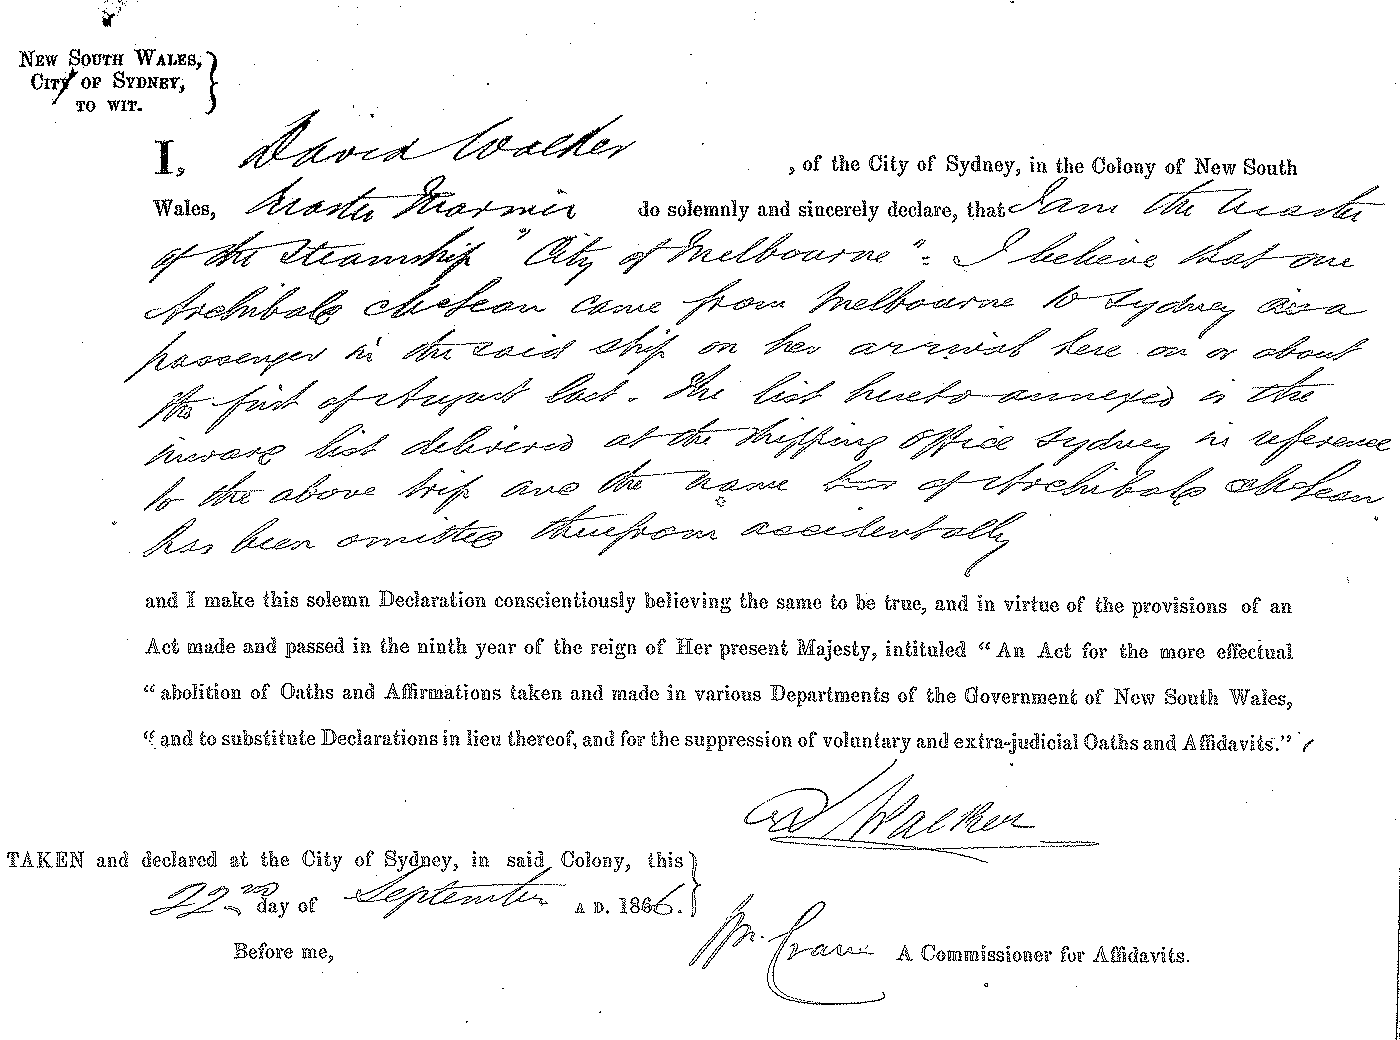 NEW SOUTH WALES,
CITY OF SYDNEY,
TO WIT.
I, David Walker, of the City of Sydney, in the Colony of New South
Wales, Master Mariner do solemnly and sincerely declare, that I am the Master
of the Steamship "City of Melbourne" - I believe that one
Archibald McLean came from Melbourne to Sydney as a
passenger in the said ship on her arrival here on or about
the first of August last. The list hereto annexed is the
inward list delivered at the Shipping Office Sydney in reference
to the above trip and the name of Archibald McLean
has been omitted therefrom accidentally
and I make this solemn Declaration conscientiously believing the same to be true, and in virtue of the provisions of an
Act made and passed in the ninth year of the reign of Her present Majesty, intituled "An Act for the more effectual
"abolition of Oaths and Affirmations taken and made in various Departments of the Government of New South Wales,
"and to substitute Declarations in lieu thereof, and for the suppression of voluntary and extra-judicial Oaths and Affidavits."
D Walker
TAKEN and declared at the City of Sydney, in said Colony, this
22nd day of September A D. 1866.
Before me,
Wm. Crane A Commissioner for Affidavits.